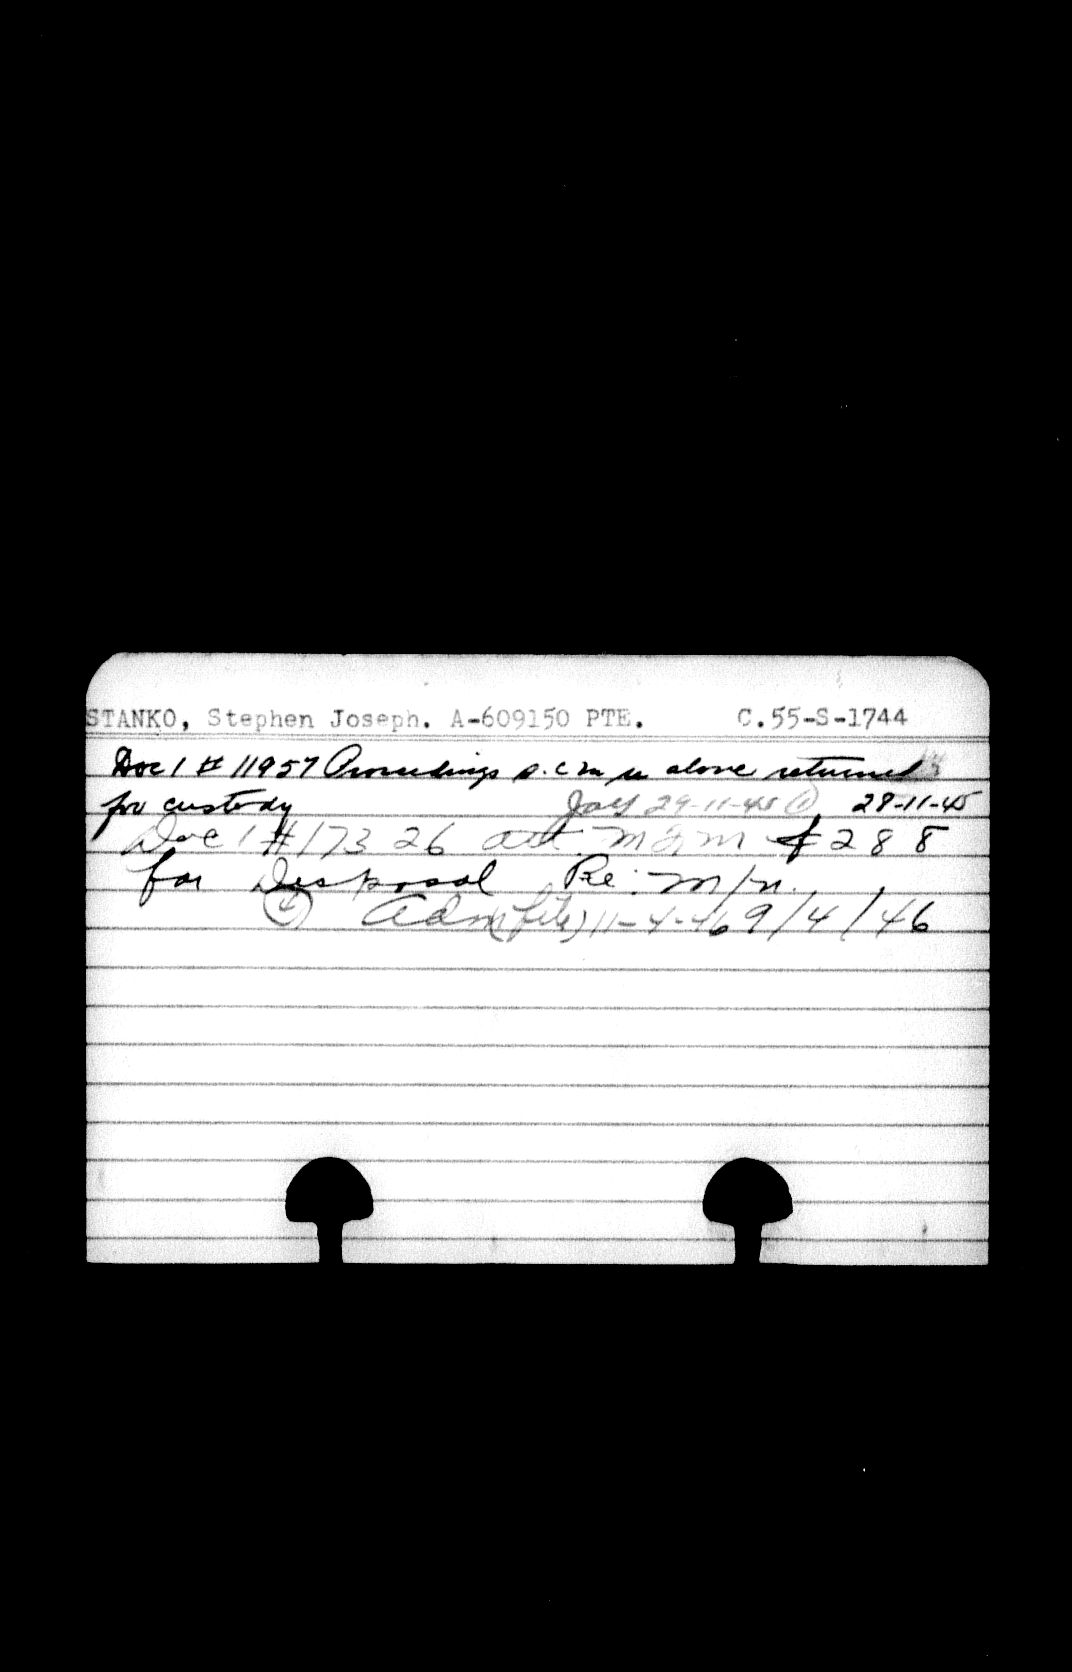 STANKO, Stephen Joseph. A-609150 PTE. C.55-S-1744
Doc 1 # 11957 Proceedings s.c.m re above returned
for custody 29-11-45 28-11-45
Doc 1 # 17326 att. 288
for Disposal Re: m/n.
Adm file 11-4-46 9/4/46